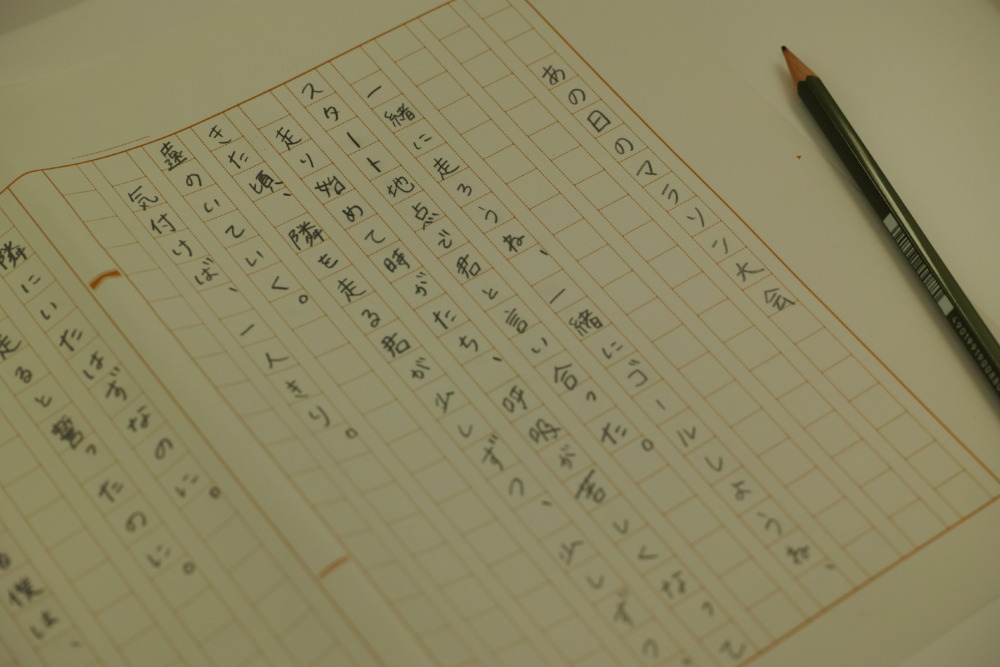 あの日のマラソン大会
一緒に走ろうね、一緒にゴールしようね、
スタート地点で君と言い合った。
走り始めて時がたち、呼吸が苦しくなって
きた頃、隣を走る君が少しずつ、少しずつ、
遠のいていく。
気付けば、一人きり。
隣にいたはずなのに。
走ると誓ったのに。
る僕は、